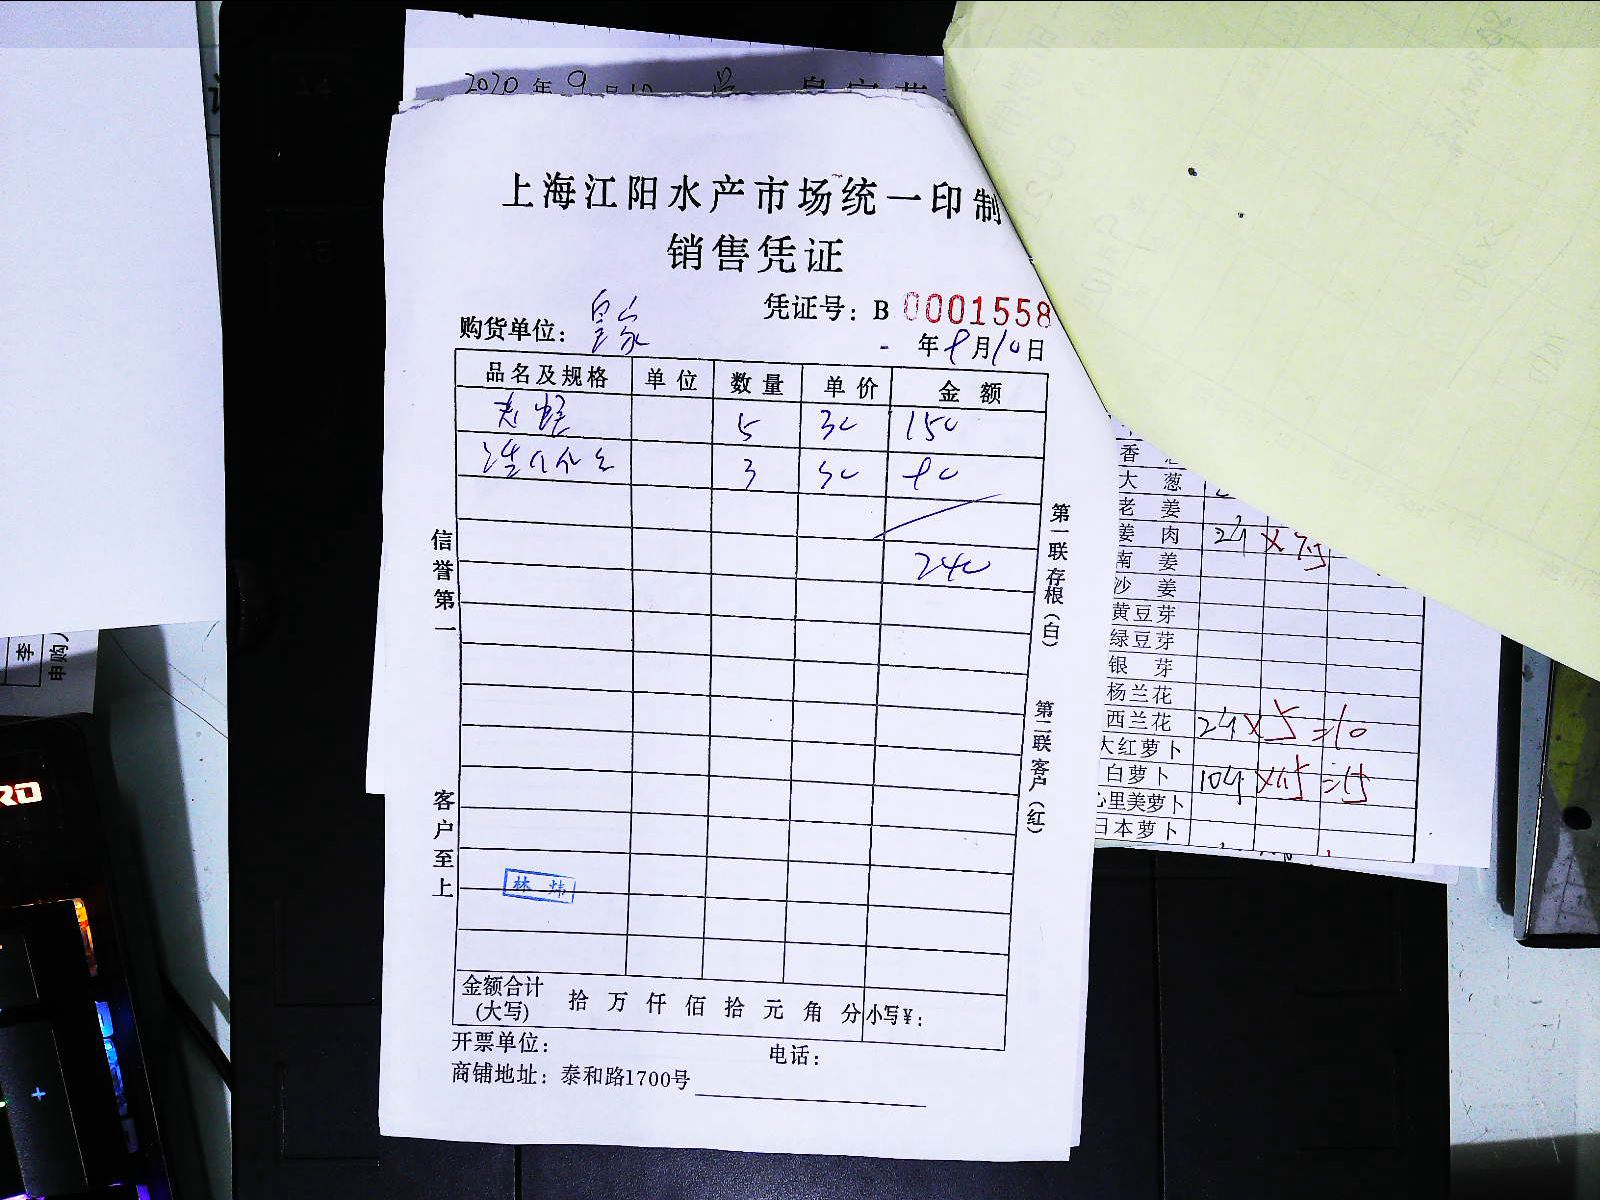 2020年9月10
上海江阳水产市场统一印制
销售凭证
凭证号：B 0001558
购货单位：皇家
年9月10日
品名及规格 单位 数量 单价 金额
5 30 150
3 30 90
240
信誉第一
客户至上
第一联存根（白）
第二联客户（红）
林炜
金额合计(大写) 拾万仟佰拾元角分 小写¥：
开票单位： 电话：
商铺地址：泰和路1700号
香
大葱
老姜
姜肉 2斤 ×7.5
南姜
沙姜
黄豆芽
绿豆芽
银芽
杨兰花
西兰花 2斤 ×5 =10
大红萝卜
白萝卜 10斤 ×1.5 =15
心里美萝卜
日本萝卜
李
申购人
RD